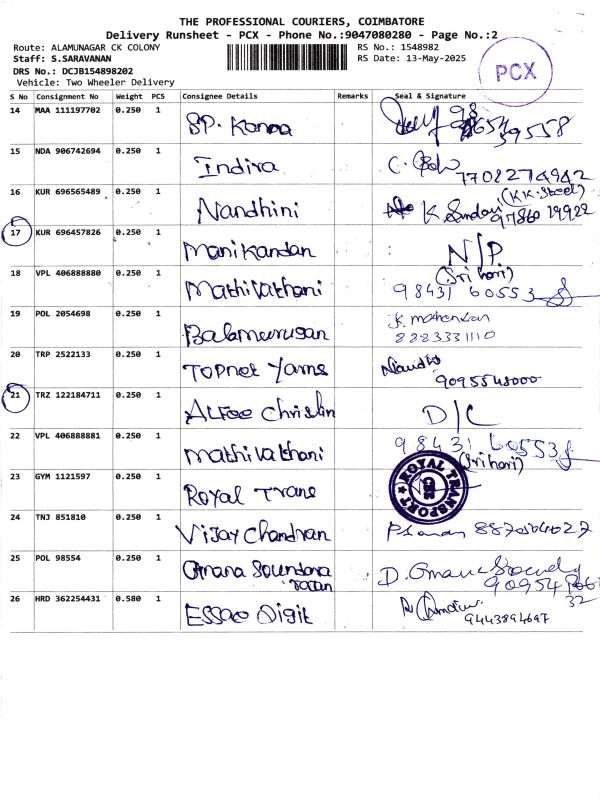 THE PROFESSIONAL COURIERS, COIMBATORE
Delivery Runsheet - PCX - Phone No.:9047080280 - Page No.:2
Route: ALAMUNAGAR CK COLONY
Staff: S.SARAVANAN
DRS No.: DCJB154898202
Vehicle: Two Wheeler Delivery
RS No.: 1548982
RS Date: 13-May-2025
PCX
S No Consignment No Weight PCS Consignee Details Remarks Seal & Signature
14 MAA 111197702 0.250 1 SP. Kanna
15 NDA 906742694 0.250 1 Indira 7708274942
16 KUR 696565489 0.250 1 Nandhini (KK. Steel)
K. Sundari
17 KUR 696457826 0.250 1 Manikandan N/P
18 VPL 406888880 0.250 1 Mathivathani (Sri hari)
98431 60553
19 POL 2054698 0.250 1 Balamurugan
8883331110
20 TRP 2522133 0.250 1 Topnet Yarns
9095548000
21 TRZ 122184711 0.250 1 D/C
22 VPL 406888881 0.250 1 Mathivathani 98431 60553
(Sri hari)
23 GYM 1121597 0.250 1 Royal Trans ROYAL TRANSPORT CBE
24 TNJ 851810 0.250 1 Vijay Chandran
25 POL 98554 0.250 1 Gnana Soundara
26 HRD 362254431 0.580 1 Essae Digit
9443894697